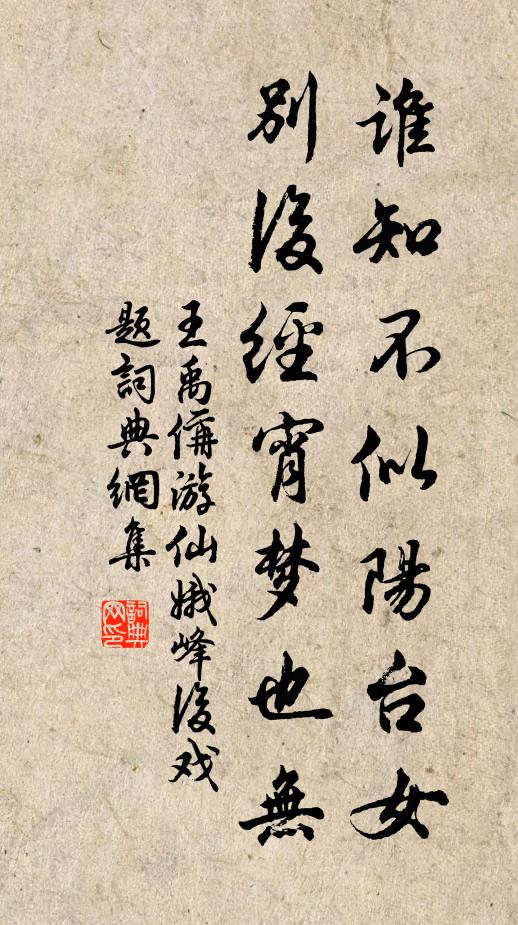 誰知不似陽台女
別後經宵夢也無
王禹偁游仙娥峰後戏
題詞典網集
詞典
网印